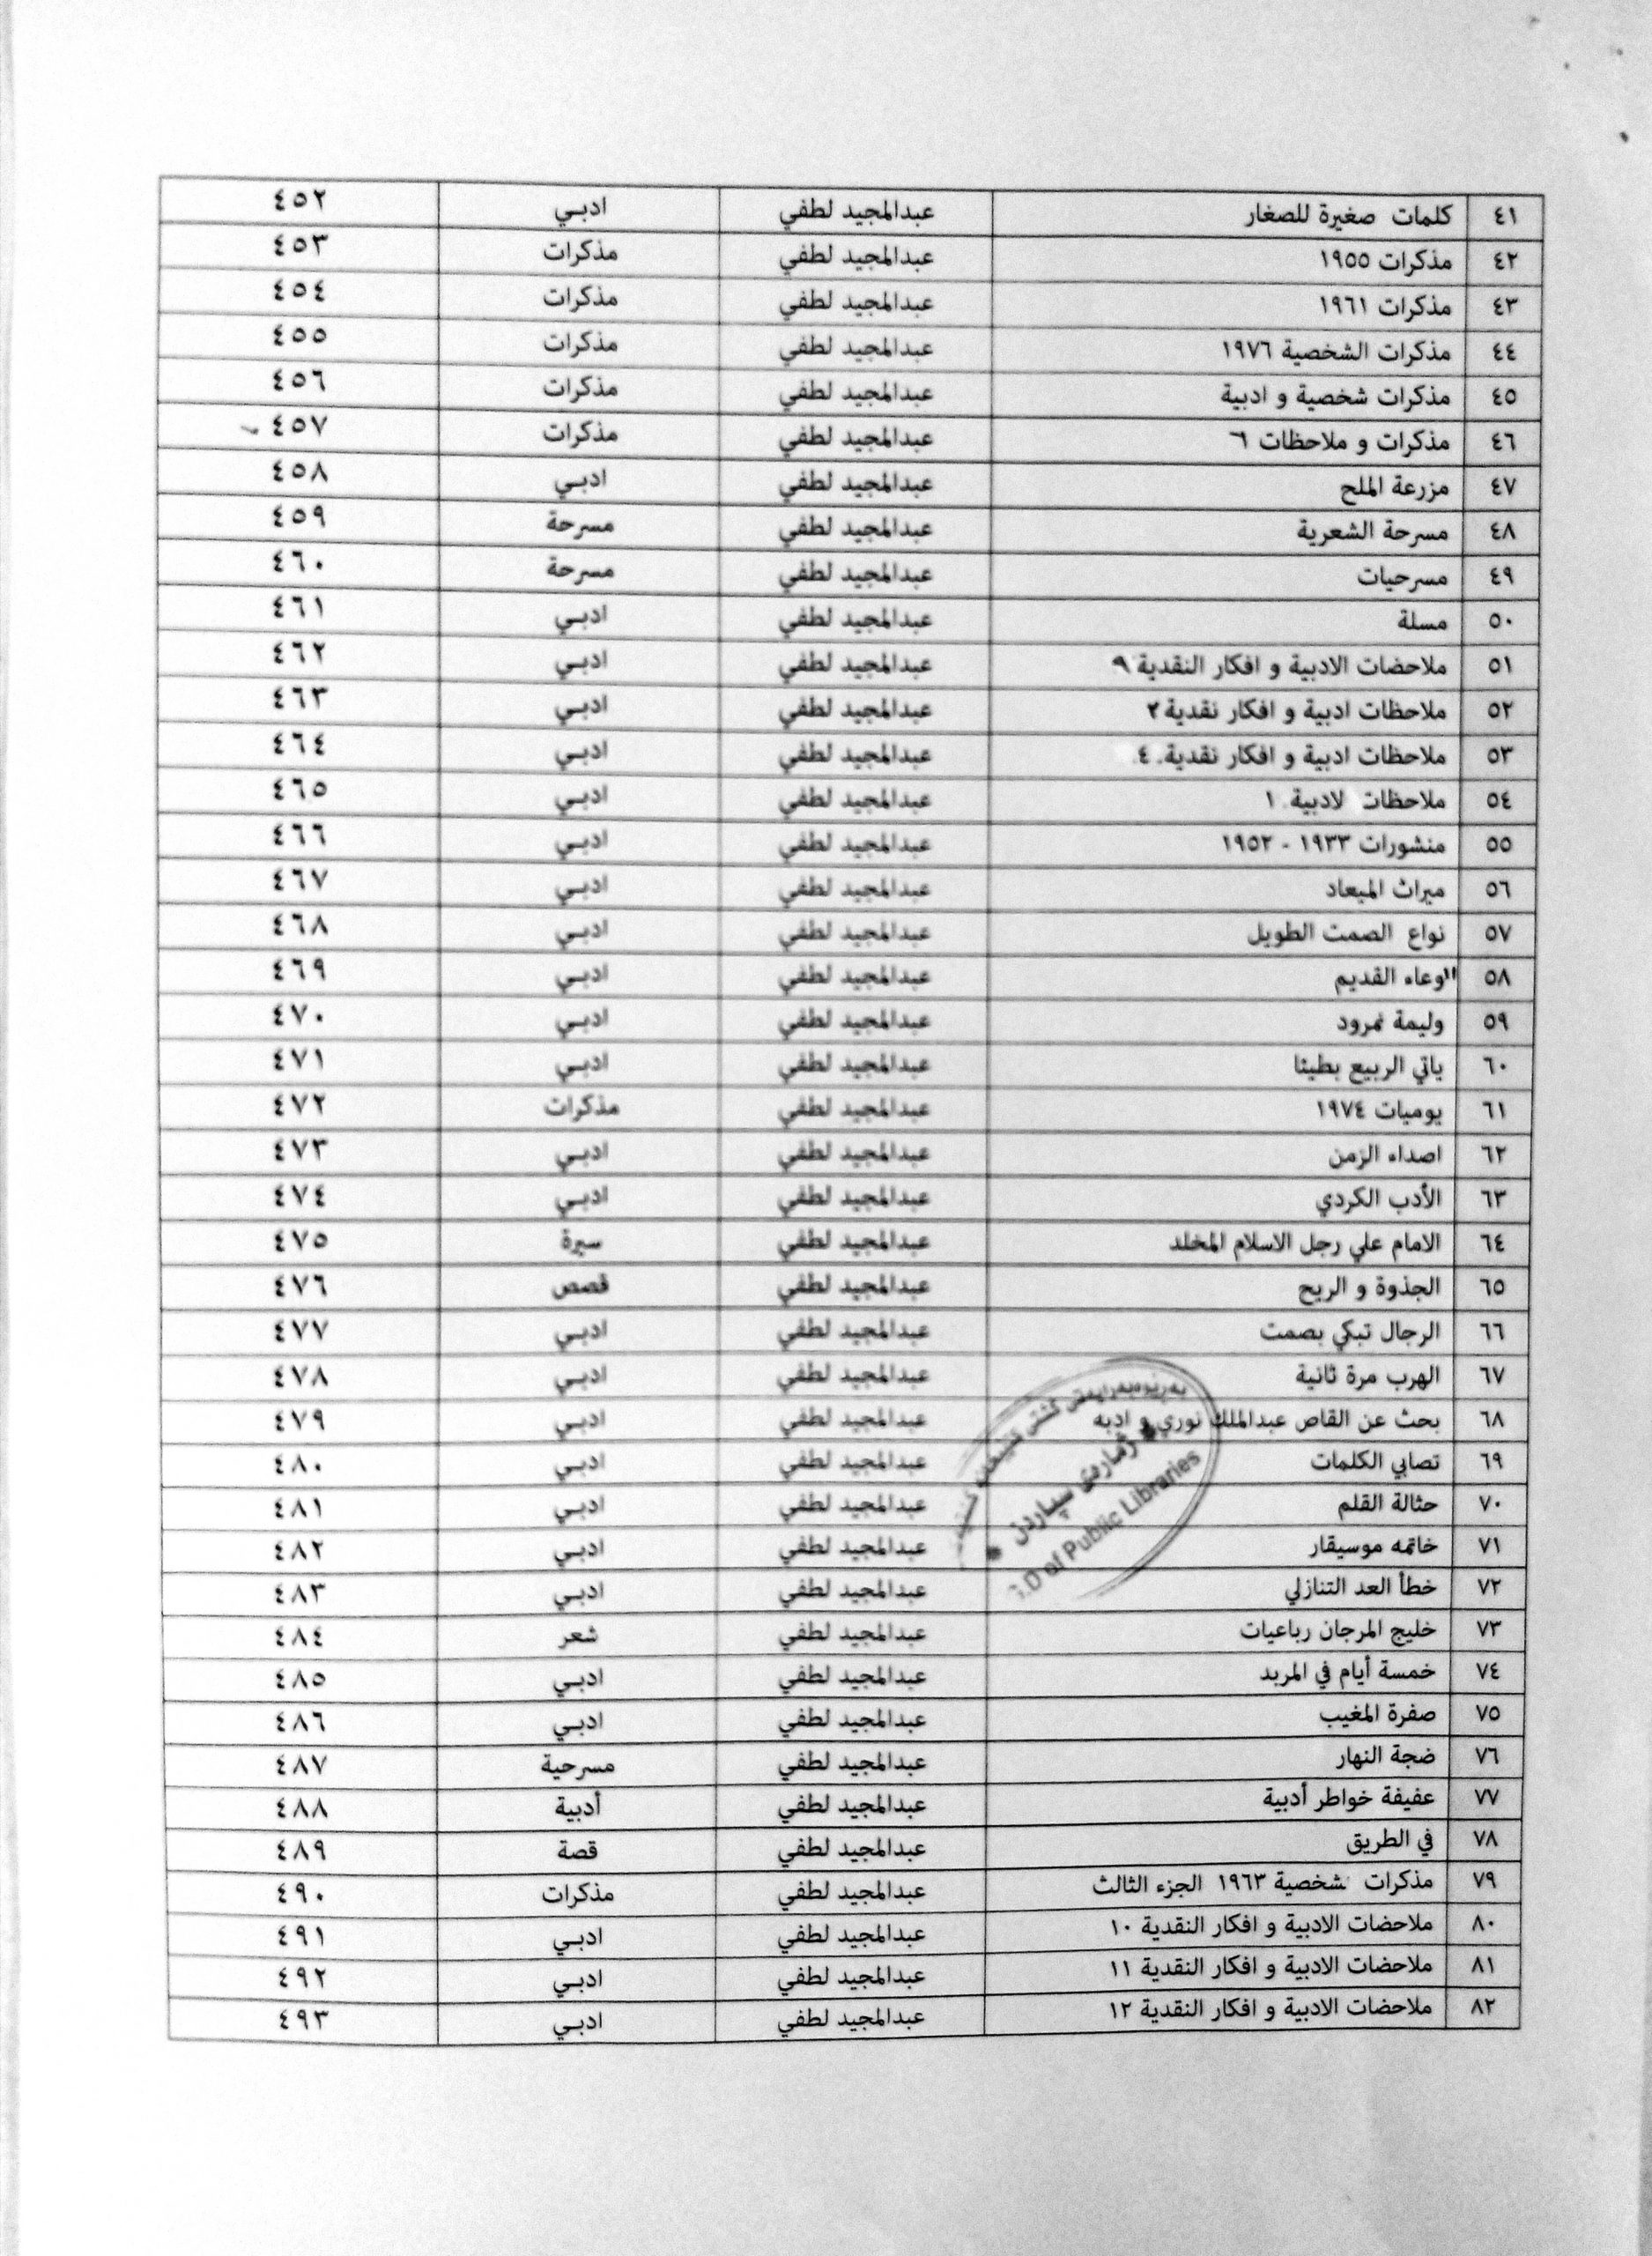 ٤١ كلمات صغيرة للصغار عبدالمجيد لطفي ادبي ٤٥٢
٤٢ مذكرات ١٩٥٥ عبدالمجيد لطفي مذكرات ٤٥٣
٤٣ مذكرات ١٩٦١ عبدالمجيد لطفي مذكرات ٤٥٤
٤٤ مذكرات الشخصية ١٩٧٦ عبدالمجيد لطفي مذكرات ٤٥٥
٤٥ مذكرات شخصية و ادبية عبدالمجيد لطفي مذكرات ٤٥٦
٤٦ مذكرات و ملاحظات ٦ عبدالمجيد لطفي مذكرات ٤٥٧
٤٧ مزرعة الملح عبدالمجيد لطفي ادبي ٤٥٨
٤٨ مسرحة الشعرية عبدالمجيد لطفي مسرحة ٤٥٩
٤٩ مسرحيات عبدالمجيد لطفي مسرحة ٤٦٠
٥٠ مسلة عبدالمجيد لطفي ادبي ٤٦١
٥١ ملاحضات الادبية و افكار النقدية ٩ عبدالمجيد لطفي ادبي ٤٦٢
٥٢ ملاحظات ادبية و افكار نقدية ٢ عبدالمجيد لطفي ادبي ٤٦٣
٥٣ ملاحظات ادبية و افكار نقدية. ٤ عبدالمجيد لطفي ادبي ٤٦٤
٥٤ ملاحظات لادبية. ١ عبدالمجيد لطفي ادبي ٤٦٥
٥٥ منشورات ١٩٣٣ - ١٩٥٢ عبدالمجيد لطفي ادبي ٤٦٦
٥٦ ميراث الميعاد عبدالمجيد لطفي ادبي ٤٦٧
٥٧ نواع الصمت الطويل عبدالمجيد لطفي ادبي ٤٦٨
٥٨ "وعاء القديم عبدالمجيد لطفي ادبي ٤٦٩
٥٩ وليمة نمرود عبدالمجيد لطفي ادبي ٤٧٠
٦٠ ياتي الربيع بطيئا عبدالمجيد لطفي ادبي ٤٧١
٦١ يوميات ١٩٧٤ عبدالمجيد لطفي مذكرات ٤٧٢
٦٢ اصداء الزمن عبدالمجيد لطفي ادبي ٤٧٣
٦٣ الأدب الكردي عبدالمجيد لطفي ادبي ٤٧٤
٦٤ الامام علي رجل الاسلام المخلد عبدالمجيد لطفي سيرة ٤٧٥
٦٥ الجذوة و الريح عبدالمجيد لطفي قصص ٤٧٦
٦٦ الرجال تبكي بصمت عبدالمجيد لطفي ادبي ٤٧٧
٦٧ الهرب مرة ثانية عبدالمجيد لطفي ادبي ٤٧٨
٦٨ بحث عن القاص عبدالملك نوري و ادبه عبدالمجيد لطفي ادبي ٤٧٩
٦٩ تصابي الكلمات عبدالمجيد لطفي ادبي ٤٨٠
٧٠ حثالة القلم عبدالمجيد لطفي ادبي ٤٨١
٧١ خاتمه موسيقار عبدالمجيد لطفي ادبي ٤٨٢
٧٢ خطأ العد التنازلي عبدالمجيد لطفي ادبي ٤٨٣
٧٣ خليج المرجان رباعيات عبدالمجيد لطفي شعر ٤٨٤
٧٤ خمسة أيام في المربد عبدالمجيد لطفي ادبي ٤٨٥
٧٥ صفرة المغيب عبدالمجيد لطفي ادبي ٤٨٦
٧٦ ضجة النهار عبدالمجيد لطفي مسرحية ٤٨٧
٧٧ عفيفة خواطر أدبية عبدالمجيد لطفي أدبية ٤٨٨
٧٨ في الطريق عبدالمجيد لطفي قصة ٤٨٩
٧٩ مذكرات شخصية ١٩٦٣ الجزء الثالث عبدالمجيد لطفي مذكرات ٤٩٠
٨٠ ملاحضات الادبية و افكار النقدية ١٠ عبدالمجيد لطفي ادبي ٤٩١
٨١ ملاحضات الادبية و افكار النقدية ١١ عبدالمجيد لطفي ادبي ٤٩٢
٨٢ ملاحضات الادبية و افكار النقدية ١٢ عبدالمجيد لطفي ادبي ٤٩٣
بەڕێوەبەرایەتی گشتی
ژمارەی سپاردن
G.D of Public Libraries